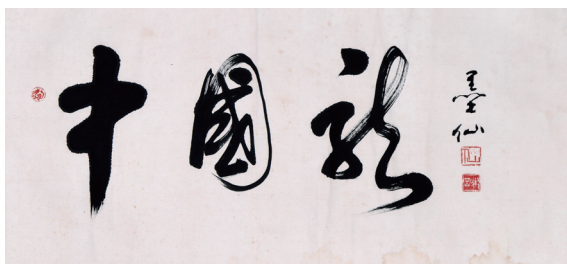 中國龍
墨仙